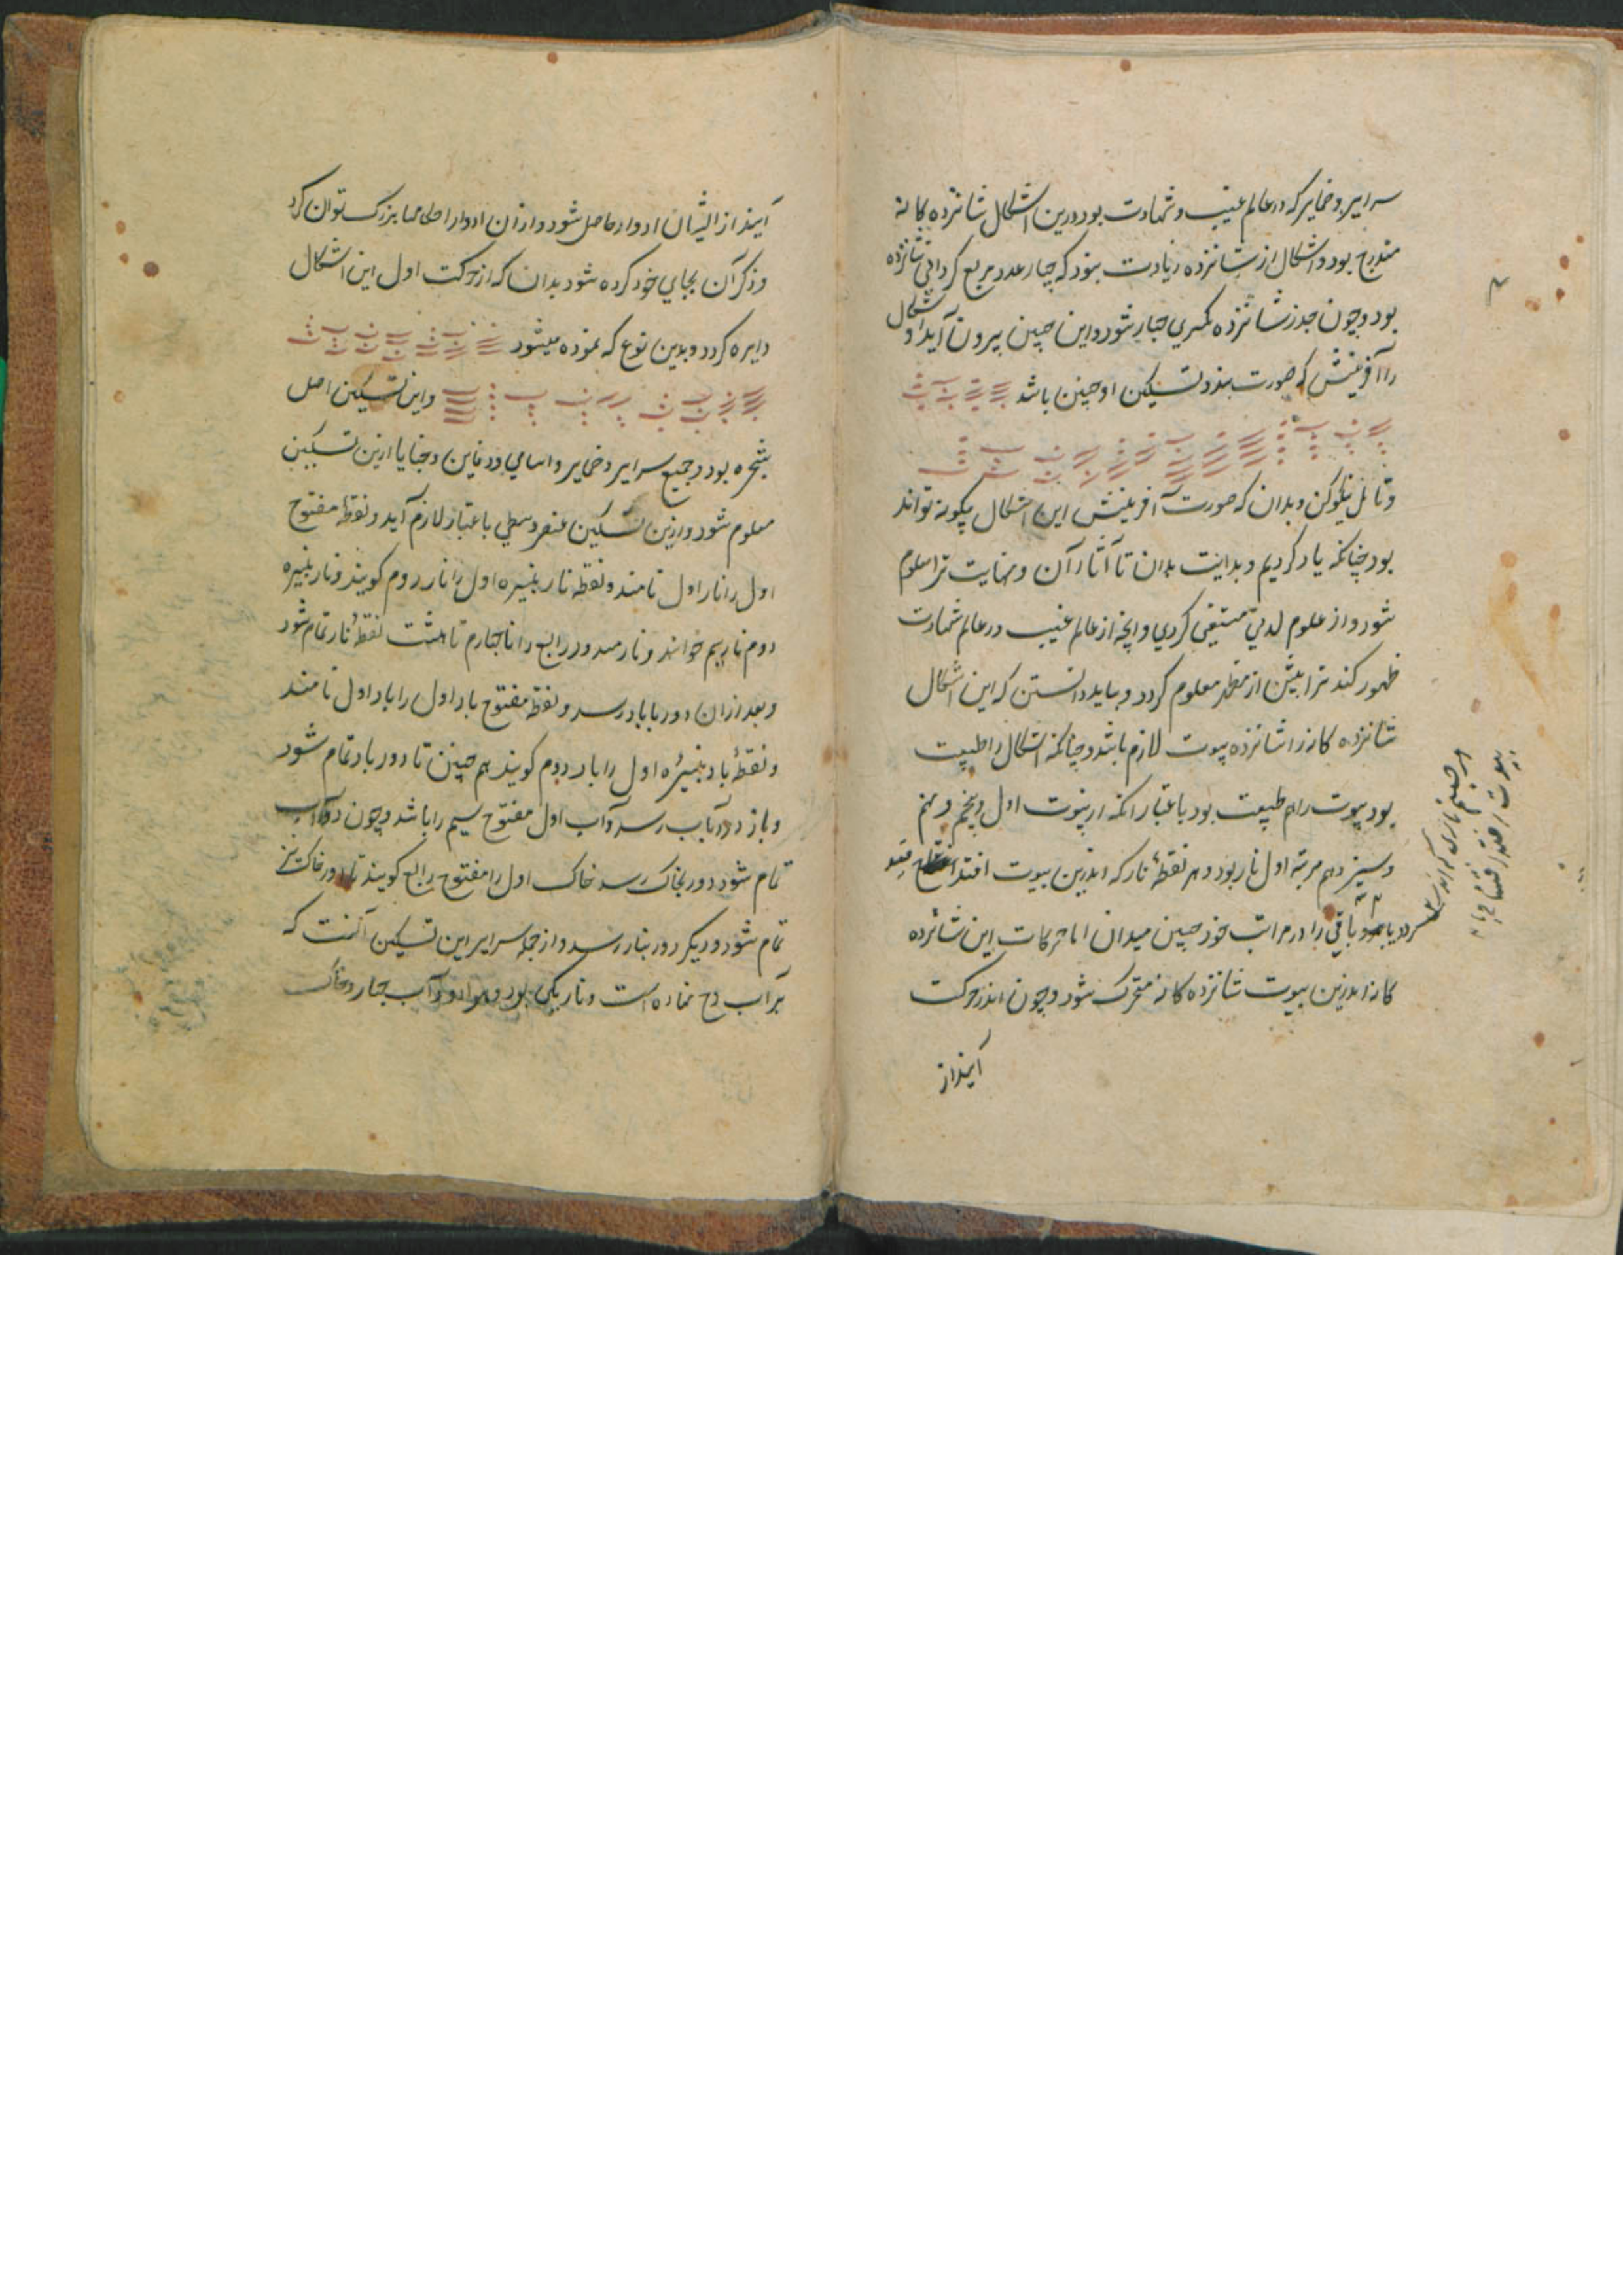 سرایر و ضمایر که در عالم غیب و شهادت بود درین اشکال شانزده کانه
مندرج بود و اشکال از شانزده زیادت نبود که چهار عدد مربع کردانی شانزده
بود و چون جذر شانزده کیری چهار شود و این چنین بیرون آید و اشکال
را آفرینش که صورت بندد تسکین او چنین باشد
و تامل نیکو کن و بدان که صورت آفرینش این اشکال چکونه تواند
بود چنانکه یاد کردیم و بدایت بدان تا آثار آن و نهایت ترا معلوم
شود و از علوم لدنی مستغنی کردی و انچه از عالم غیب در عالم شهادت
ظهور کند ترا بیش از معلوم کردد و بباید دانستن که این اشکال
شانزده کانه را شانزده بیوت لازم باشد و چنانکه اشکال را طبیعت
بود بیوت را هم طبیعت بود باعتبار انکه از بیوت اول و پنجم و نهم
و سیزدهم مرتبه اول نار بود و هر نقطهٔ نار که اندرین بیوت افتد
و باقی را در مراتب خود چنین میدان اما حرکات این شانزده
کانه اندرین بیوت شانزده کانه متحرک شود و چون اندر حرکت
آیند از
آیند از ایشان ادوار حاصل شود و از ان ادوار احکامها بزرک توان کرد
و ذکر آن بجای خود کرده شود بدان که از حرکت اول این اشکال
دایره کردد و بدین نوع که نموده میشود
و این تسکین اصل
شجره بود و جمیع سرایر و ضمایر و اسامی و دفاین و خبایا ازین تسکین
معلوم شود و ازین تسکین عنصر وسطی باعتبار لازم آید و نقطهٔ مفتوح
اول را نار اول نامند و نقطه نار بنیره اول را نار دوم کویند و نار بنیره
دوم نار سیم خوانند و نار رابع را نار چهارم تا هشت نقطهٔ نار تمام شود
و بعد از ان دور با باد رسد و نقطه مفتوح باد اول را باد اول نامند
و نقطهٔ باد بنیرهٔ اول را باد دوم کویند هم چنین تا دور باد تمام شود
و باز دور بآب رسد و آب اول مفتوح سیم را باشد و چون دور آب
تمام شود دور بخاک رسد خاک اول را مفتوح رابع کویند تا دور خاک نیز
تمام شود و دیکر دور بنار رسد و از جمله سرایر این تسکین آنست که
بر آب دح نهاده است و نار یکی بود و هوا دو و آب چهار و خاک